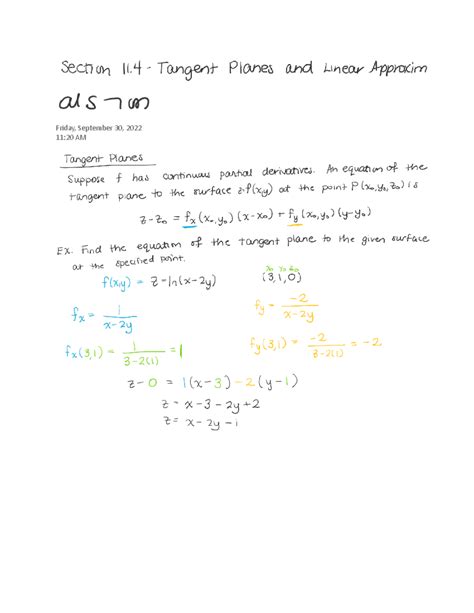 Section 11.4 - Tangent Planes and Linear Approxim
Friday, September 30, 2022
11:20 AM
Tangent Planes
Suppose f has continuous partial derivatives. An equation of the
tangent plane to the surface z=f(x,y) at the point P(x₀,y₀,z₀) is
z-z₀ = fₓ(x₀,y₀)(x-x₀) + f_y(x₀,y₀)(y-y₀)
Ex. Find the equation of the tangent plane to the given surface
at the specified point.
x₀ y₀ z₀
f(x,y) = z=ln(x-2y) (3,1,0)
fₓ = 1/(x-2y) f_y = -2/(x-2y)
fₓ(3,1) = 1/(3-2(1)) = 1 f_y(3,1) = -2/(3-2(1)) = -2
z-0 = 1(x-3)-2(y-1)
z = x-3-2y+2
z = x-2y-1